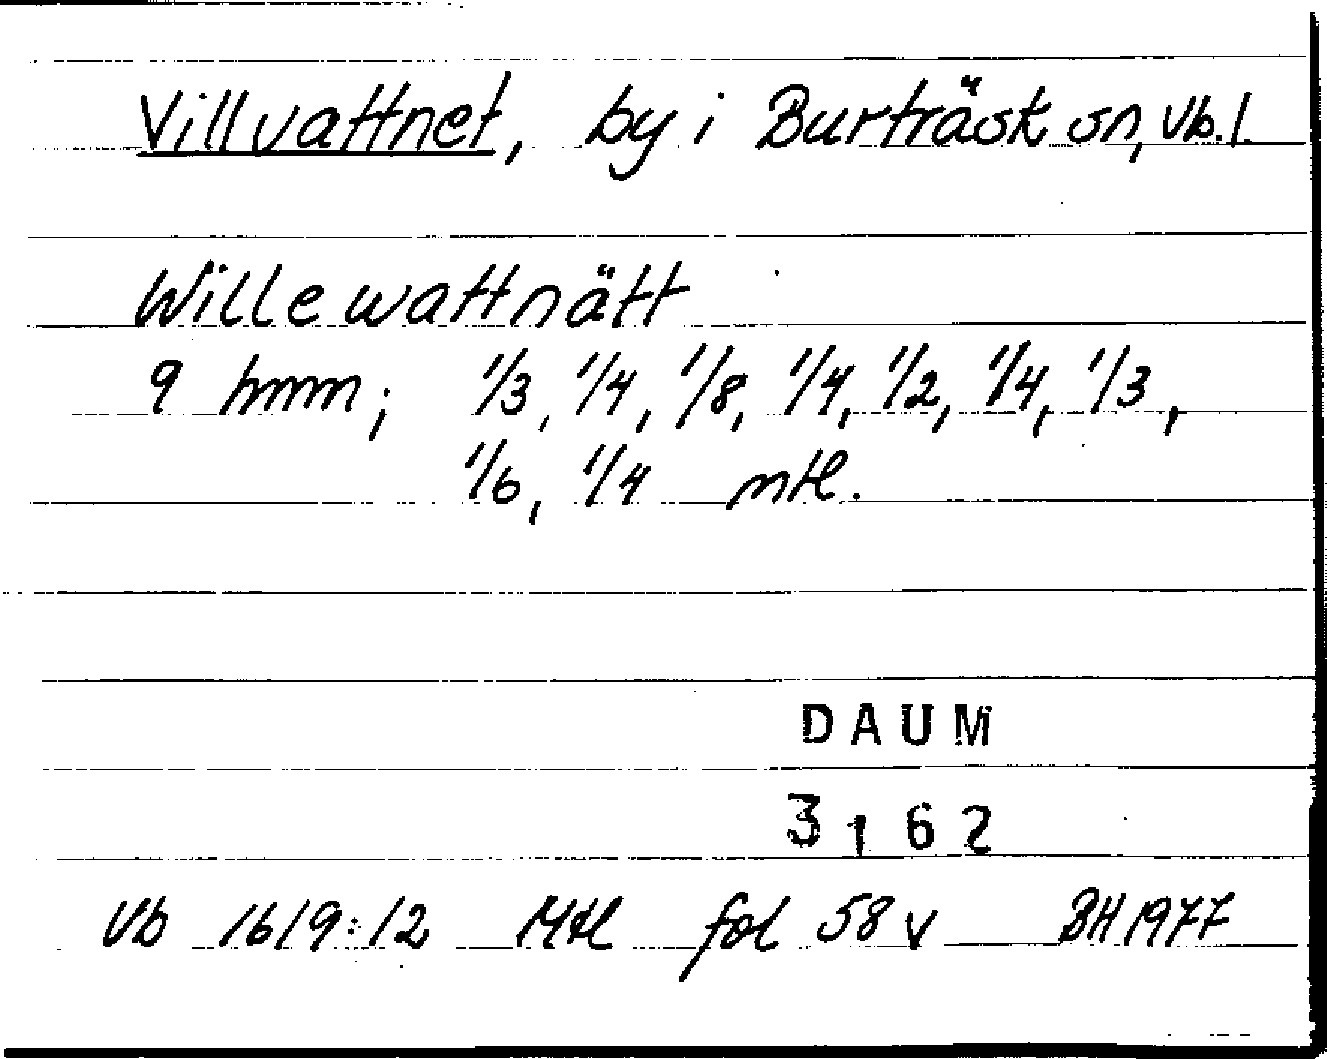 Villvattnet, by i Burträsk sn, Vb. l.
Willewattnätt
9 hmm; 1/3, 1/4, 1/8, 1/4, 1/2, 1/4, 1/3,
1/6, 1/4 mtl.
DAUM
3162
Vb 1619:12 Mtl fol 58 v BH 1977